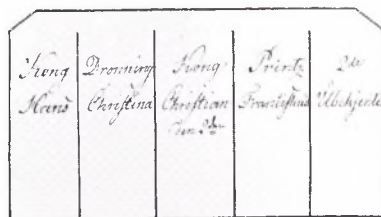 Kong
Hans
Dronning
Christina
Kong
Christian
den 2den
Printz
Franciscus
2de